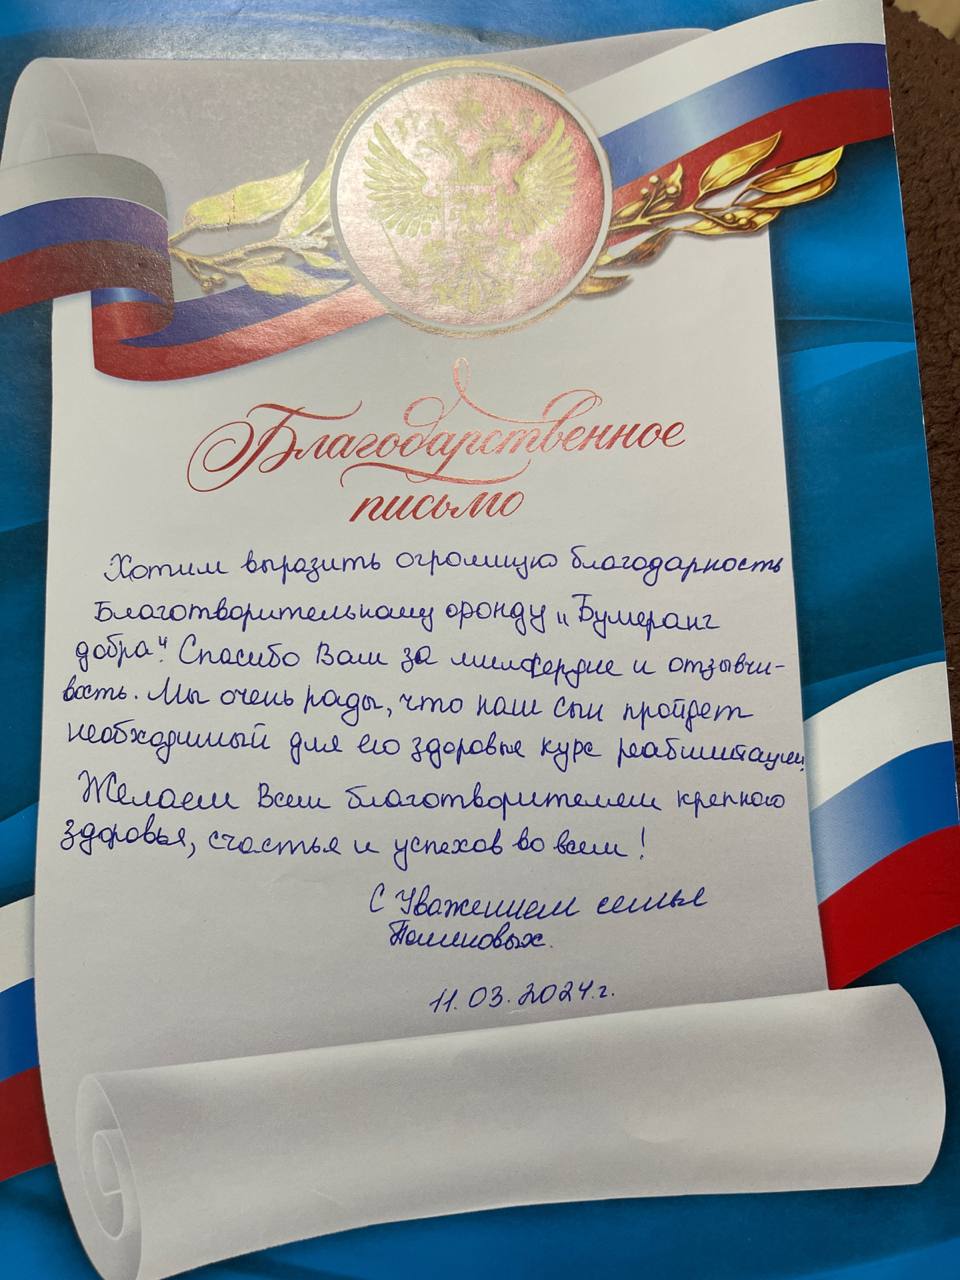 Благодарственное
письмо
Хотим выразить огромную благодарность
Благотворительному фонду „Бумеранг
добра". Спасибо Вам за милосердие и отзывчи-
вость. Мы очень рады, что наш сын пройдет
необходимый для его здоровья курс реабилитации.
Желаем Всем благотворителям крепкого
здоровья, счастья и успехов во всем!
С Уважением семья
11.03.2024г.